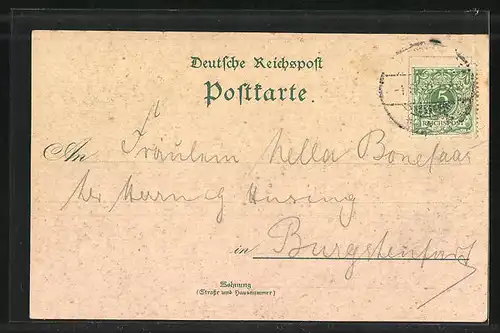 Deutsche Reichspost
Postkarte.
5
REICHSPOST
An Fräulein Hella Bonefaas
in Burgsteinfurt
Wohnung
(Straße und Hausnummer)